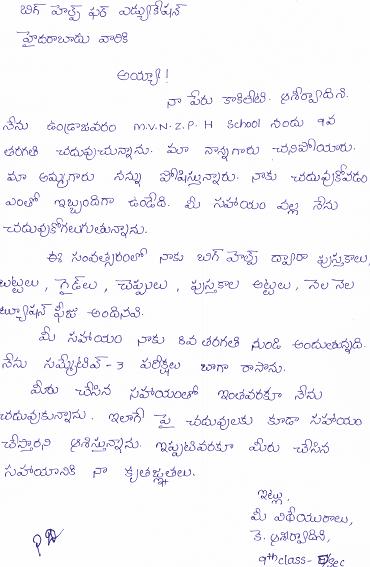 బిగ్ హెల్ప్ ఫర్ ఎడ్యుకేషన్
హైదరాబాదు వారికి
అయ్యా!
నా పేరు కాకిలేటి. ఆశీర్వాదిని.
నేను ఉండ్రాజవరం M.V.N.Z.P.H School నందు 9వ
తరగతి చదువుచున్నాను. మా నాన్నగారు చనిపోయారు.
మా అమ్మగారు నన్ను పోషిస్తున్నారు. నాకు చదువుకోవడం
ఎంతో ఇబ్బందిగా ఉండేది. మీ సహాయం వల్ల నేను
చదువుకోగలుగుతున్నాను.
ఈ సంవత్సరంలో నాకు బిగ్ హెల్ప్ ద్వారా పుస్తకాలు,
బట్టలు, గైడ్‌లు, చెప్పులు, పుస్తకాల అట్టలు, నెల నెల
ట్యూషన్ ఫీజు అందినవి.
మీ సహాయం నాకు 8వ తరగతి నుండి అందుతున్నది.
నేను సమ్మేటివ్-3 పరీక్షలు బాగా రాసాను.
మీరు చేసిన సహాయంతో ఇంతవరకూ నేను
చదువుకున్నాను. ఇలాగే పై చదువులకు కూడా సహాయం
చేస్తారని ఆశిస్తున్నాను. ఇప్పటివరకూ మీరు చేసిన
సహాయానికి నా కృతజ్ఞతలు.
ఇట్లు,
మీ విధేయురాలు,
కె. ఆశీర్వాదిని,
9th class-